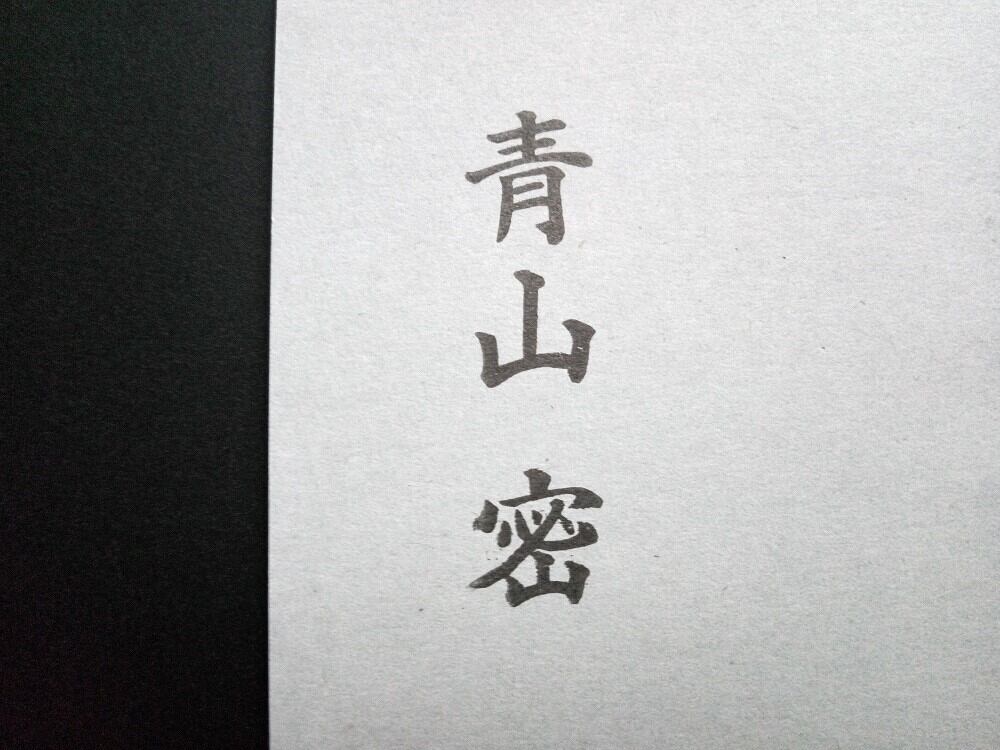 青山密